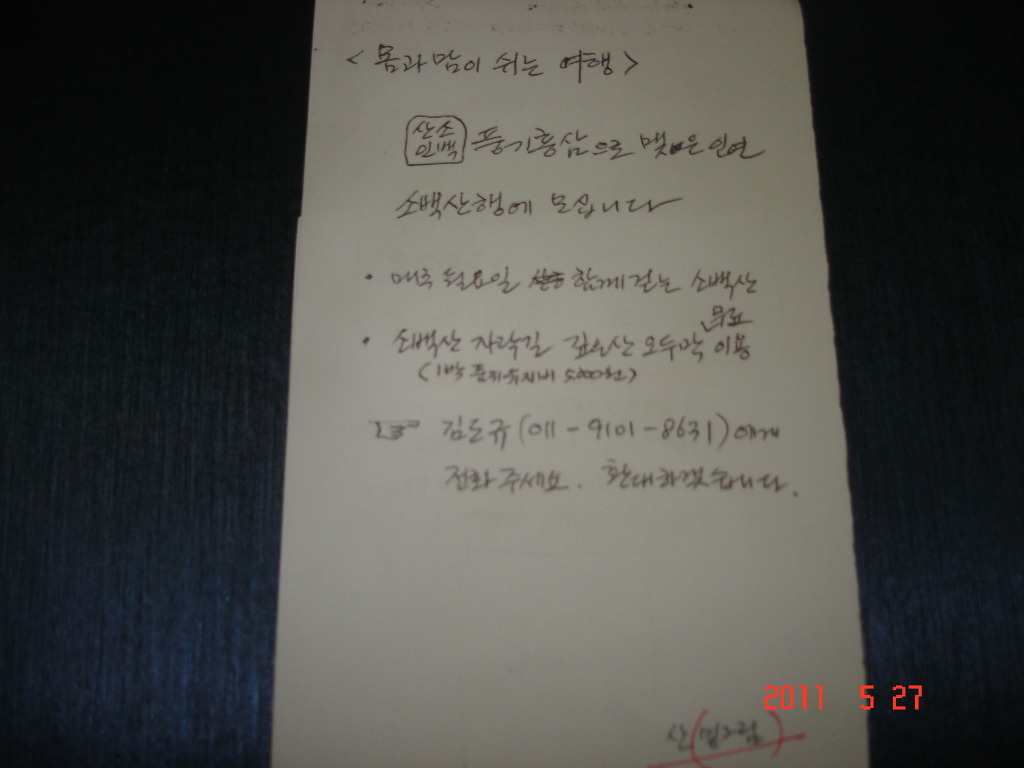 <몸과 맘이 쉬는 여행>
산소
인백
풍기홍삼으로 맺은 인연
소백산행에 모십니다
• 매주 월요일 함께 걷는 소백산
무료
• 소백산 자락길 깊은산 오두막 이용
(1박 품위유지비 5,000원)
☞ 김도규(011-9101-8631)에게
전화 주세요. 환대하겠습니다.
산(밑그림)
2011 5 27